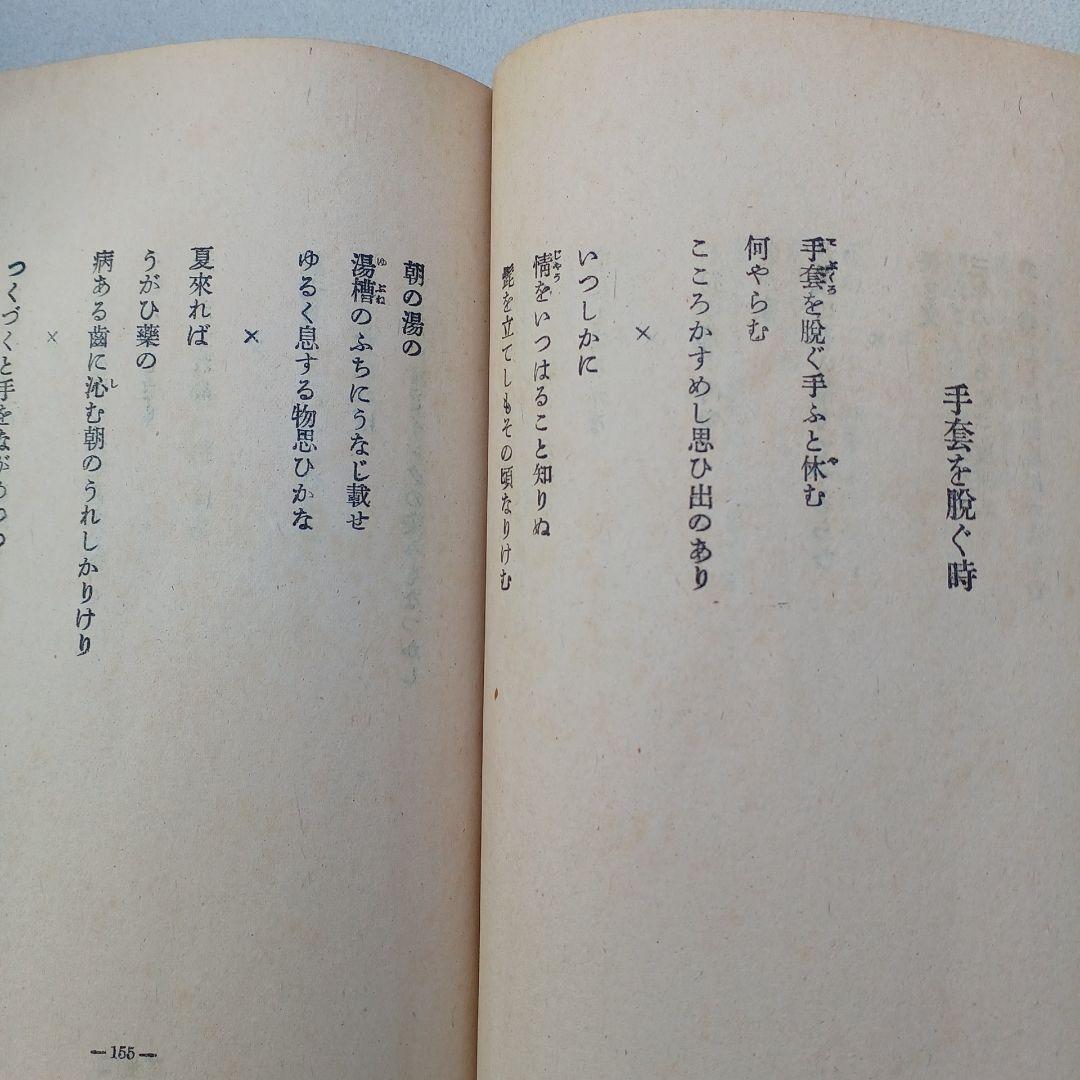 手套を脱ぐ時
手套を脱ぐ手ふと休む
何やらむ
こころかすめし思ひ出のあり
×
いつしかに
情をいつはること知りぬ
髭を立てしもその頃なりけむ
朝の湯の
湯槽のふちにうなじ載せ
ゆるく息する物思ひかな
×
夏來れば
うがひ藥の
病ある齒に沁む朝のうれしかりけり
×
つくづくと手をながめつつ
—155—